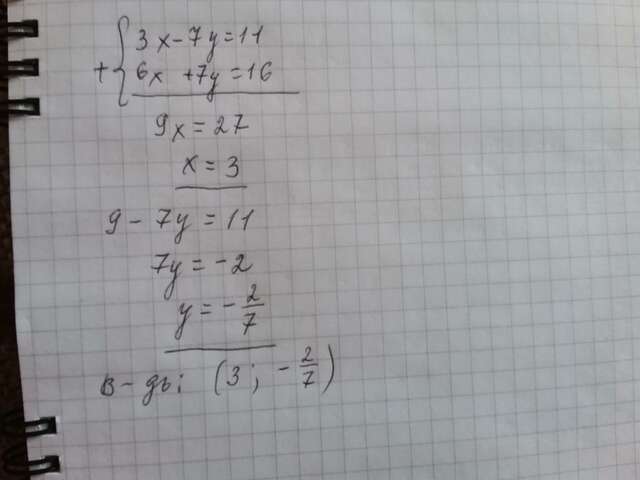 3x-7y=11
+ 6x +7y=16
9x=27
x=3
9-7y=11
7y=-2
y=-2/7
в-дь: (3; -2/7)